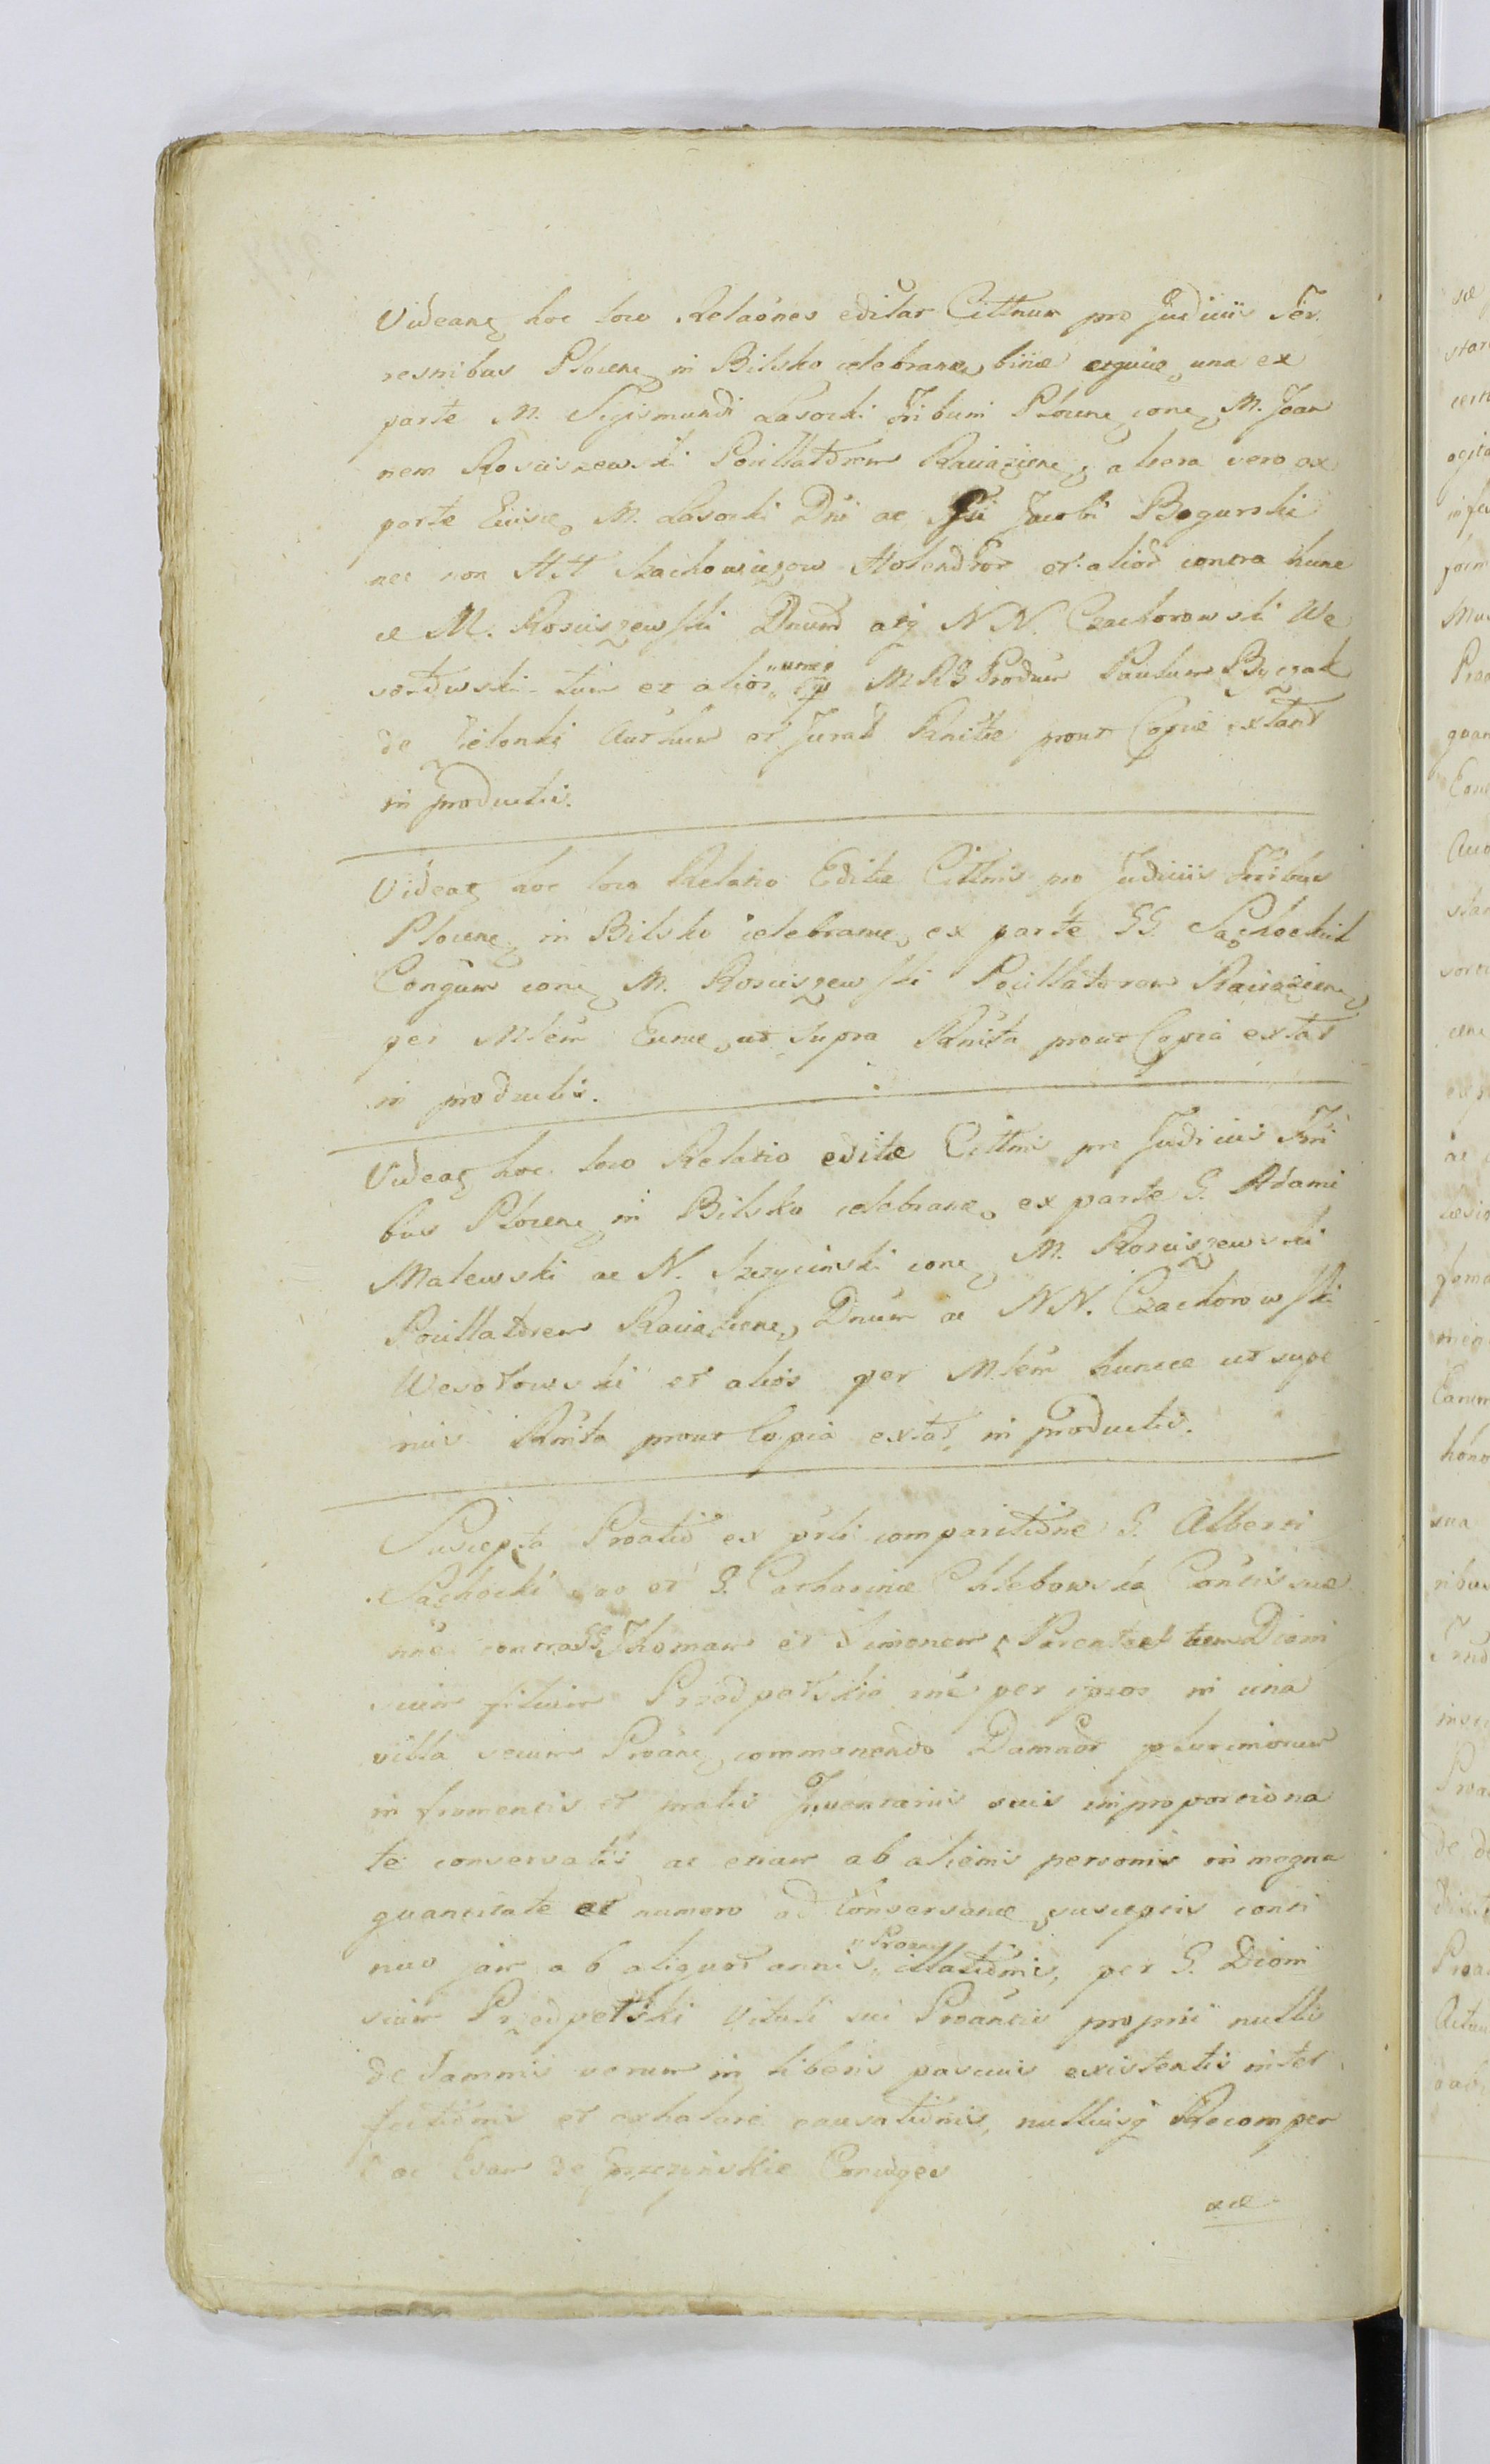 Videant hoc loco Relaōnes editar Cittnum pro Judiciis Ter
resribus Plocen in Bilsko celebran binæ eqvue una ex
parte M. Sigismundi Lasocki Tribuni Plocen con M. Joan
nem Rosciszewski Pocillatorem Raciazen, altera vero ex
parte Eiusd M. Lasocki Dni ac Jacobi Bogurski
nec non HH Szachowiczow Holendror et alior contra hunc
ce M. Rosciszewski Dnum atq NN. Czachorowski We
sołowski tum et alios M RS Produm Paulum Byczak
de Zielonki Authum et Jurat Rnitæ prout Copiæ extant
in productis.
Videat hoc loco Relatio Editæ Cittnis pro Judiciis Tribus
Plocen in Bilsko celebran ex parte GG. Sachockich
Conjgum con M. Rosciszewski Pocillatorem Raciazen
per Mlem Eunc ut supra Rnita prout Copia extat
in productis.
Videat hoc loco Relatio editæ Cittnis pro Judiciis Tri
bus Plocen in Bilsko celebran ex parte G. Adami
Malewski ac N. Szczycinski con M. Rosciszewski
Pocillatorem Raciazen, Dnum ac NN. Czachorowski
Wesołowski et alios per Mlem huncce ut supe
rius Rnita prout Copia extat in productis.
Suscepta Proatio ex prli comparitione G. Alberti
Sachocki suo et G. Catharinæ Chlebowska Contis suæ
nne contra GG Thomam et Simonem Parentes tum Dioni
sium filium Przedpełskie me per ipsos in una
villa secum Proan commanendo Damnor plurimorum
in frumentis et pratis Inventariis suis improportiona
te conservatis ac etiam ab alienis personis in magna
quantitate et numero ad conservan susceptis conti
nuo jam ab aliquot annis illationis, per G. Dioni
sium Przedpełski Vituli sui Proantis proprii nullis
de damnis verum in liberis pascuis existentis inter
fectionis et exhalari causationis, nulliusq Recompen
Coniuges